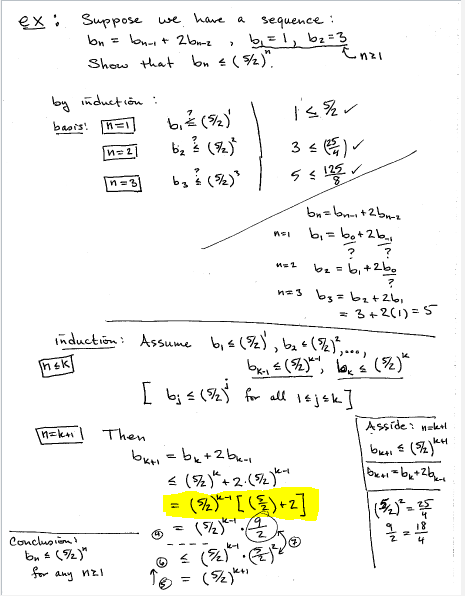 ex: Suppose we have a sequence:
bn = bn-1 + 2bn-2 , b1 = 1, b2 = 3
Show that bn ≤ (5/2)^n. n≥1
by induction:
basis: n=1 b1 ≤? (5/2)^1 1 ≤ 5/2 ✓
n=2 b2 ≤? (5/2)^2 3 ≤ (25/4) ✓
n=3 b3 ≤? (5/2)^3 5 ≤ 125/8 ✓
bn = bn-1 + 2bn-2
n=1 b1 = b0 + 2b-1
? ?
n=2 b2 = b1 + 2b0
?
n=3 b3 = b2 + 2b1
= 3 + 2(1) = 5
induction: Assume b1 ≤ (5/2)^1, b2 ≤ (5/2)^2, ...,
n≤k bk-1 ≤ (5/2)^k-1, bk ≤ (5/2)^k
[ bj ≤ (5/2)^j for all 1≤j≤k ]
n=k+1 Then
bk+1 = bk + 2bk-1
≤ (5/2)^k + 2·(5/2)^k-1
= (5/2)^k-1 [ (5/2) + 2 ]
④ = (5/2)^k-1 · 9/2
⑦
⑥ ≤ (5/2)^k-1 · (5/2)^2
⑤ = (5/2)^k+1
Asside: n=k+1
bk+1 ≤ (5/2)^k+1
bk+1 = bk + 2bk-1
(5/2)^2 = 25/4
9/2 = 18/4
Conclusion:
bn ≤ (5/2)^n
for any n≥1